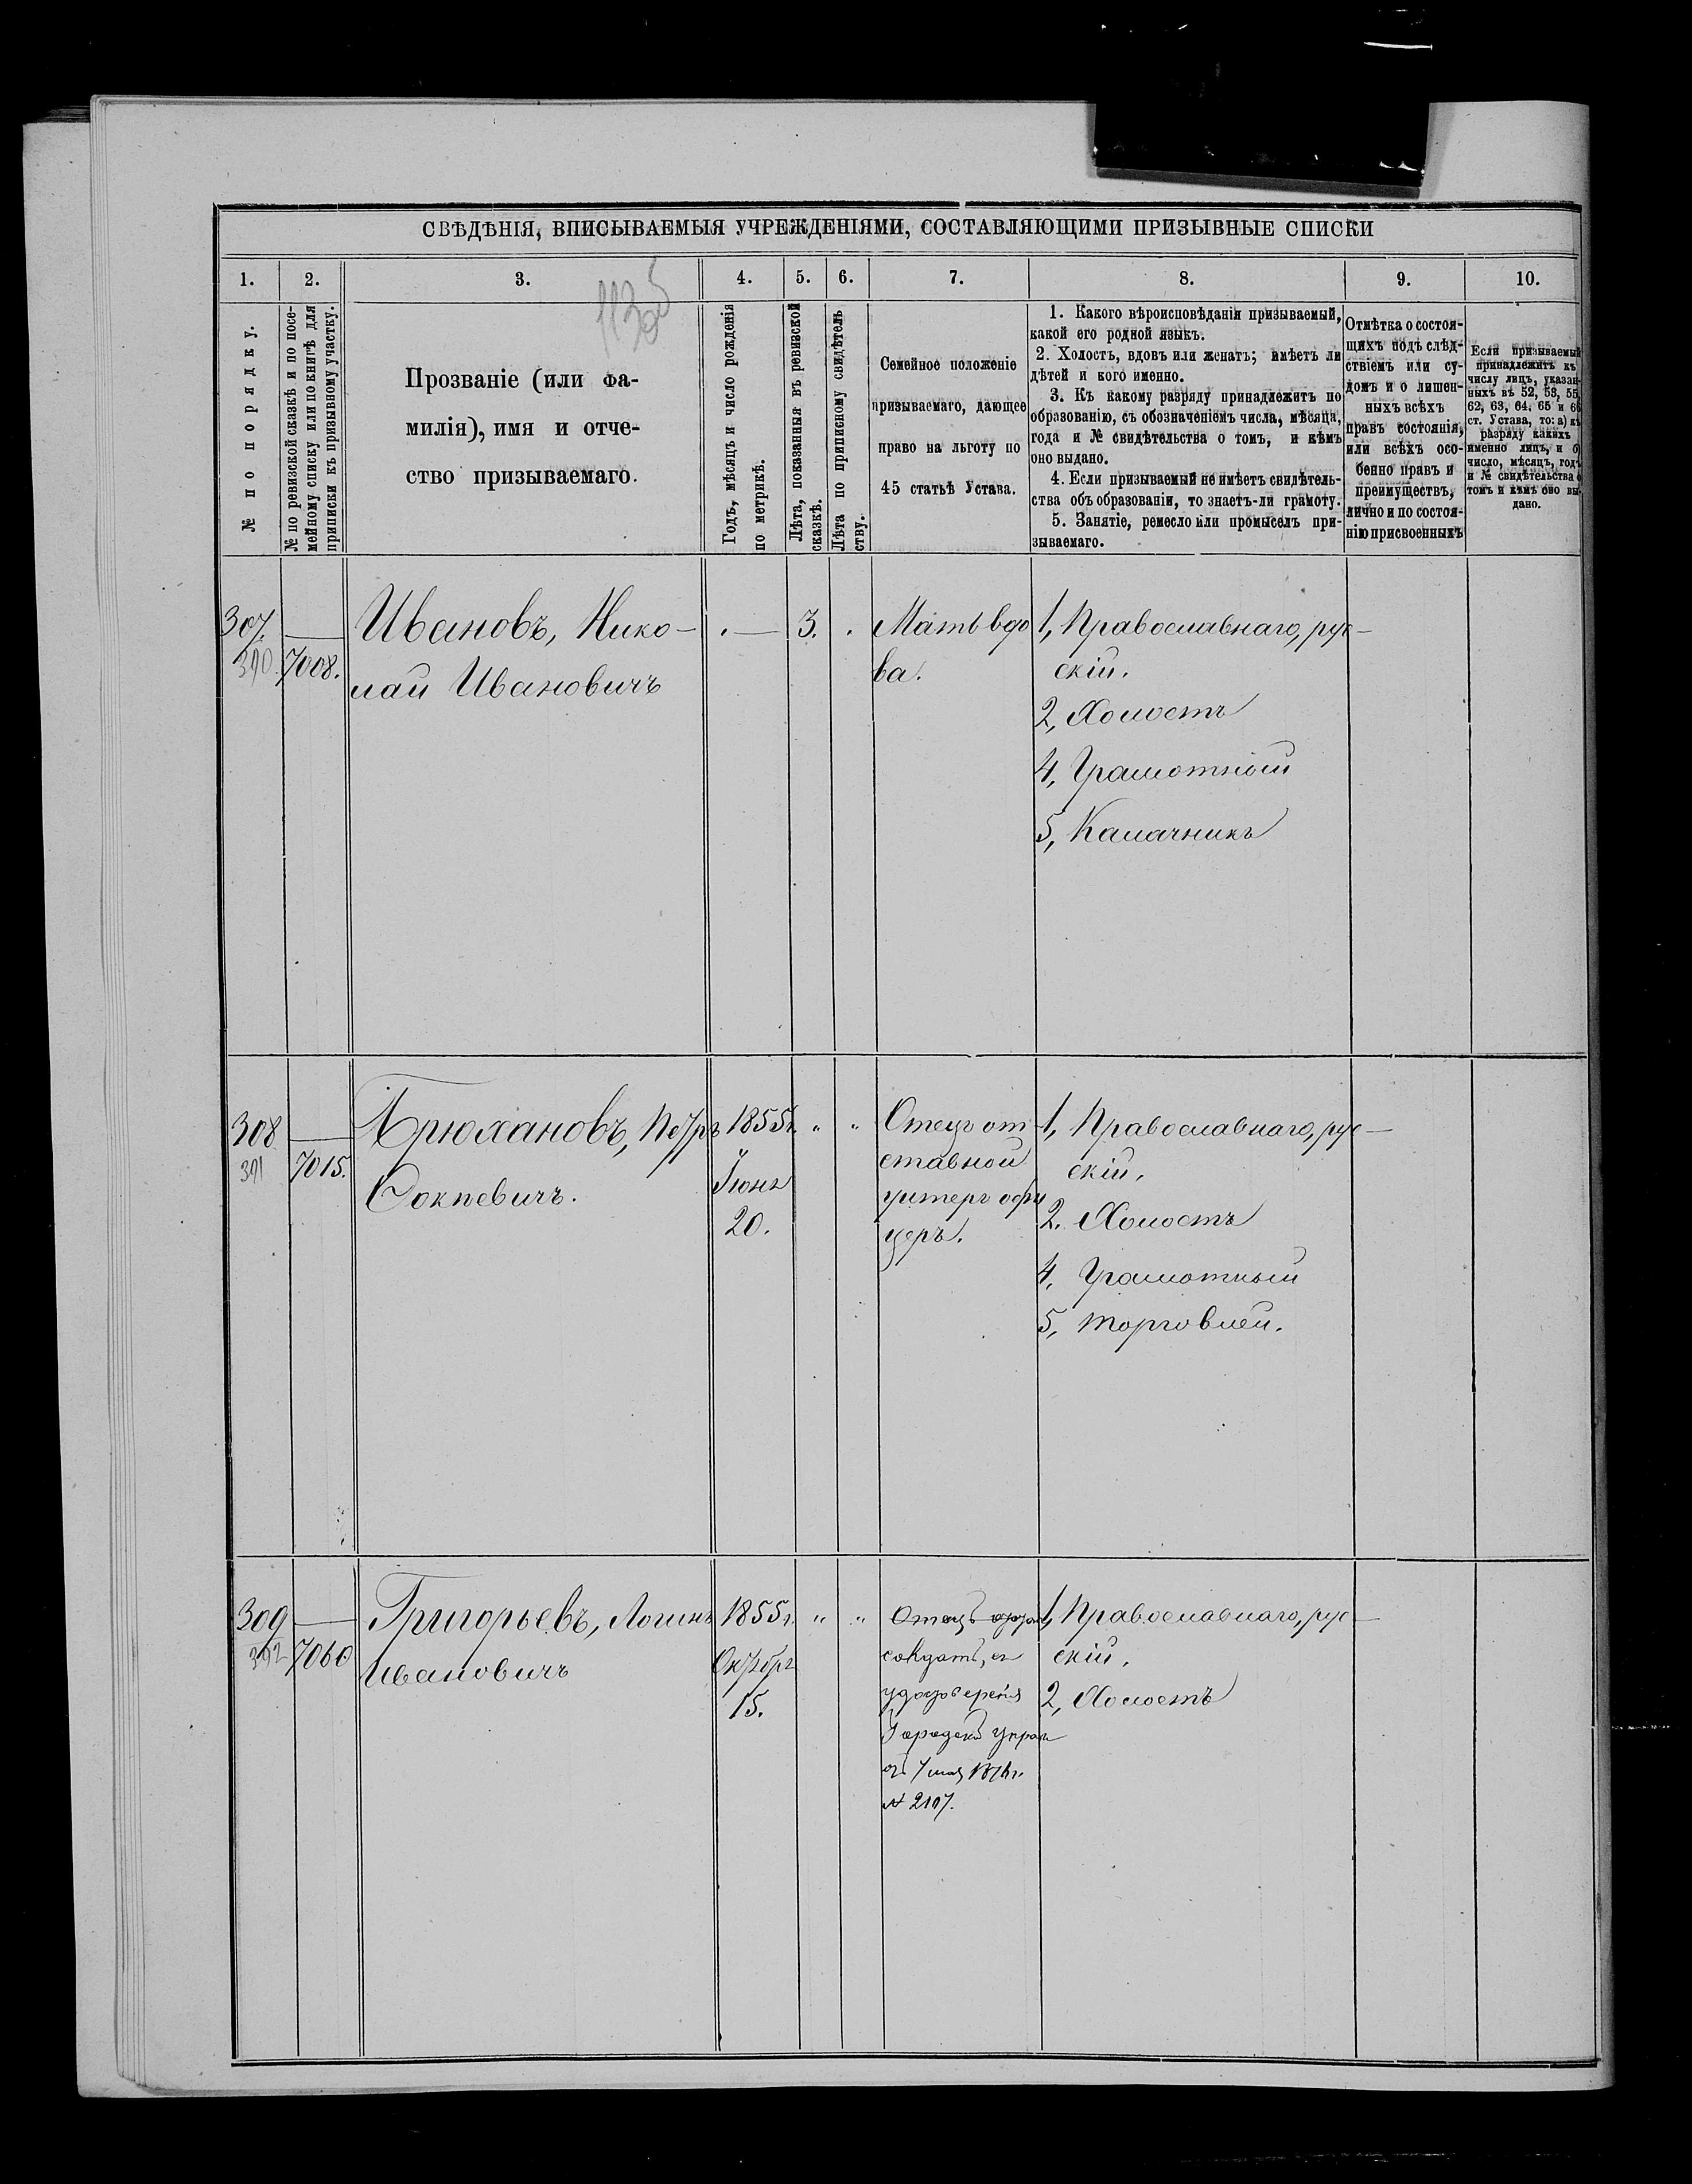 СВѢДѢНІЯ, ВПИСЫВАЕМЫЯ УЧРЕЖДЕНІЯМИ, СОСТАВЛЯЮЩИМИ ПРИЗЫВНЫЕ СПИСКИ
1.
2.
3.
4.
5.
6.
7.
8.
9.
10.
№ по порядку.
№ по ревизской сказкѣ и по посе-
мейному списку или по книгѣ для
приписки къ призывному участку.
Прозваніе (или фа-
милія), имя и отче-
ство призываемаго.
Годъ, мѣсяцъ и число рожденія
по метрикѣ.
Лѣта, показанныя въ ревизской
сказкѣ.
Лѣта по приписному свидѣтель
ству.
Семейное положеніе
призываемаго, дающее
право на льготу по
45 статьѣ Устава.
1. Какого вѣроисповѣданія призываемый,
какой его родной языкъ.
2. Холостъ, вдовъ или женатъ; имѣетъ ли
дѣтей и кого именно.
3. Къ какому разряду принадлежитъ по
образованію, съ обозначеніемъ числа, мѣсяца,
года и № свидѣтельства о томъ, и кѣмъ
оно выдано.
4. Если призываемый не имѣетъ свидѣтель-
ства объ образованіи, то знаетъ-ли грамоту.
5. Занятіе, ремесло или промыселъ при-
зываемаго.
Отмѣтка о состоя-
щихъ подъ слѣд-
ствіемъ или су-
домъ и о лишен-
ныхъ всѣхъ
правъ состоянія,
или всѣхъ осо-
бенно правъ и
преимуществъ,
лично и по состоя-
нію присвоенныхъ
Если призываемый
принадлежитъ къ
числу лицъ, указан-
ныхъ въ 52, 53, 55,
62, 63, 64, 65 и 66
ст. Устава, то: а) къ
разряду какихъ
именно лицъ, и б)
число, мѣсяцъ, годъ
и № свидѣтельства о
томъ и кѣмъ оно вы-
дано.
307.
390.
7008.
Ивановъ, Нико-
лай Ивановичъ
3.
Мать вдо
ва.
1, Православнаго, рус-
скій.
2, Холостъ
4, Грамотный
5, Калачникъ
308
391
7015.
Брюхановъ, Петръ
1855 г.
Іюня
20.
Отецъ от
ставной
унтеръ офи
церъ.
1, Православнаго, рус-
скій.
2. Холостъ
4, Грамотный
5, Торговлей.
309
392
7060
Григорьевъ, Логинъ
Ивановичъ
1855 г.
Октября
15.
Отецъ
солдатъ,
удостоверенія
Городской Управы
№ 2107.
1, Православнаго, рус-
скій.
2, Холостъ